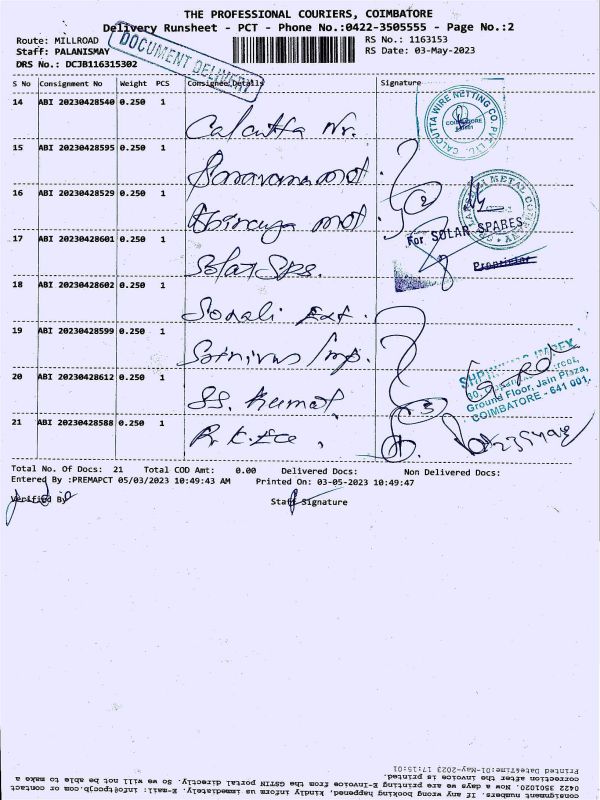 THE PROFESSIONAL COURIERS, COIMBATORE
Delivery Runsheet - PCT - Phone No.:0422-3505555 - Page No.:2
Route: MILLROAD
RS No.: 1163153
Staff: PALANISMAY
RS Date: 03-May-2023
DRS No.: DCJB116315302
DOCUMENT DELIVERY
S No Consignment No Weight PCS Consignee Details Signature
14 ABI 20230428540 0.250 1 Calcutta Nr.
CALCUTTA WIRE NETTING CO. PVT. LTD.
COIMBATORE
15 ABI 20230428595 0.250 1
16 ABI 20230428529 0.250 1
METAL COMPANY
2
For SOLAR SPARES
Proprietor
17 ABI 20230428601 0.250 1 Solar Sps.
18 ABI 20230428602 0.250 1 Sonali Ext.
19 ABI 20230428599 0.250 1 Srinivas Imp.
20 ABI 20230428612 0.250 1 SS. Kumar
Ground Floor, Jain Plaza,
COIMBATORE - 641 001.
21 ABI 20230428588 0.250 1
Total No. Of Docs: 21 Total COD Amt: 0.00 Delivered Docs: Non Delivered Docs:
Entered By :PREMAPCT 05/03/2023 10:49:43 AM Printed On: 03-05-2023 10:49:47
Verified By Staff Signature
consignment numbers. If any wrong booking happened, kindly inform us immediately. E-mail: info@tpccjb.com or contact
0422 3501020. Now a days we are printing E-Invoice from the GSTIN portal directly. So we will not be able to make a
correction after the invoice is printed.
Printed DateTime:01-May-2023 17:15:01